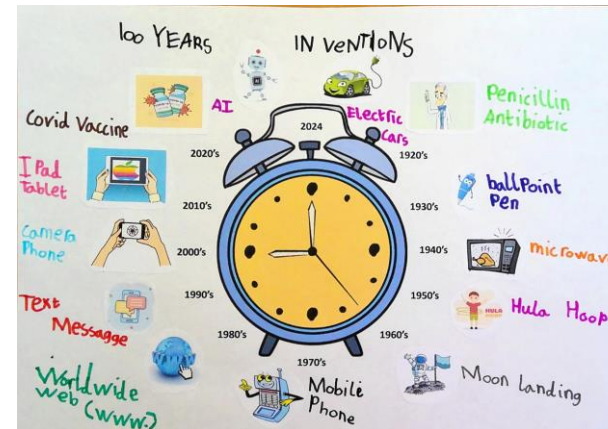 100 YEARS IN VENTIONS
AI
Electric
Cars
2024
Penicillin
Antibiotic
1920's
ballPoint
Pen
1930's
microwave
1940's
Hula Hoop
HULA
1950's
Moon landing
1960's
Mobile
Phone
1970's
Worldwide
Web (www.)
1980's
Text
Messagge
1990's
Camera
Phone
2000's
IPad
Tablet
2010's
Covid Vaccine
2020's